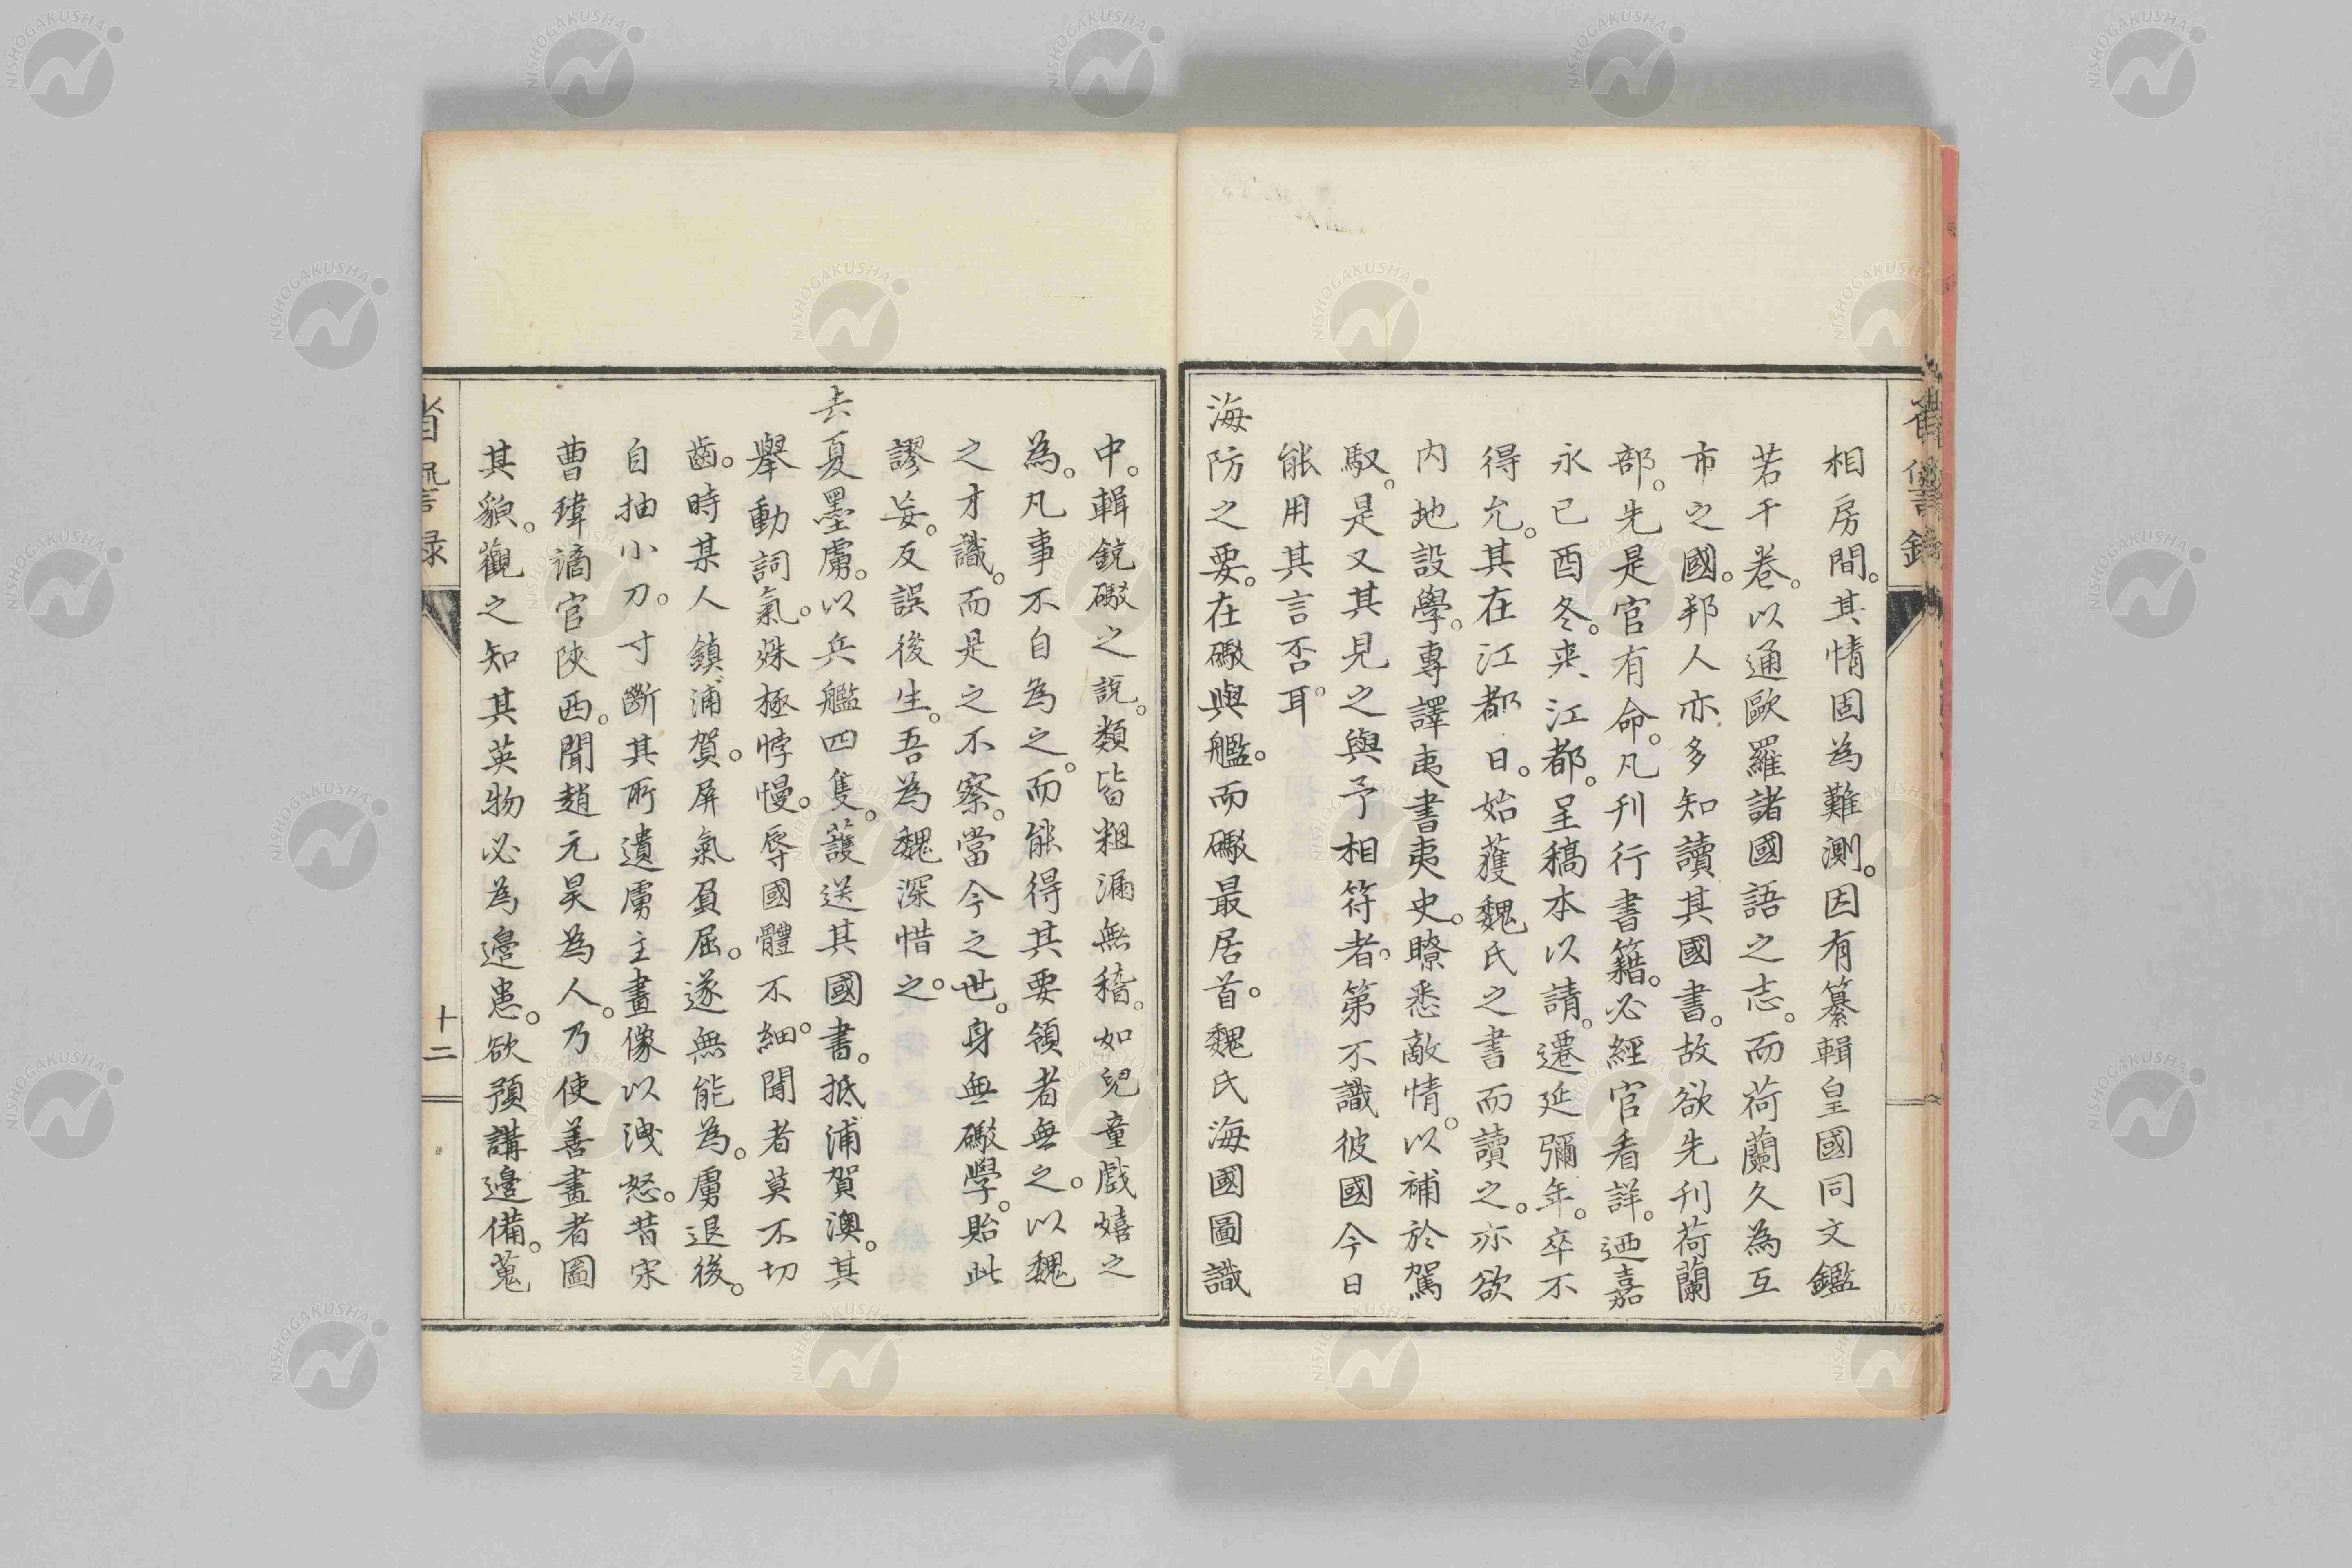 省諐錄
相房間。其情固為難測。因有纂輯皇國同文鑑
若干卷。以通歐羅諸國語之志。而荷蘭久為互
市之國。邦人亦多知讀其國書。故欲先刊荷蘭
部。先是官有命。凡刊行書籍。必經官看詳。迺嘉
永己酉冬。來江都。呈稿本以請。遷延彌年。卒不
得允。其在江都日。始獲魏氏之書而讀之。亦欲
內地設學。專譯夷書夷史。瞭悉敵情。以補於駕
馭。是又其見之與予相符者。第不識彼國今日
能用其言否耳。
海防之要。在礮與艦。而礮最居首。魏氏海國圖識
中。輯銃礮之說。類皆粗漏無稽。如兒童戲嬉之
為。凡事不自為之。而能得其要領者無之。以魏
之才識。而是之不察。當今之世。身無礮學。貽此
謬妄。反誤後生。吾為魏深惜之。
去夏墨虜。以兵艦四隻。護送其國書。抵浦賀澳。其
舉動詞氣。殊極悖慢。辱國體不細。聞者莫不切
齒。時某人鎮浦賀。屏氣負屈。遂無能為。虜退後。
自抽小刀。寸斷其所遺虜主畫像以洩怒。昔宋
曹瑋謫官陝西。聞趙元昊為人。乃使善畫者圖
其貌。觀之知其英物必為邊患。欲預講邊備。蒐
省諐錄
十二
NISHOGAKUSHA